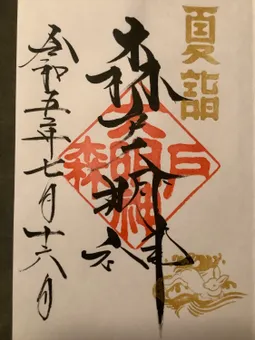 夏詣
森戸大明神
森戸
大明神
令和五年七月十六日